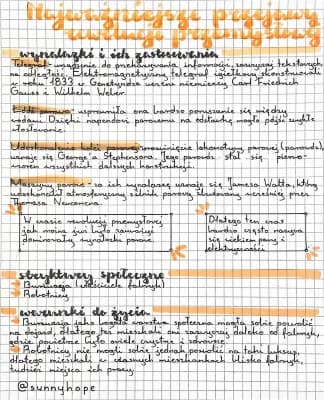 Najważniejsze przejawy
rewolucji przemysłowej
wynalazki i ich zastosowanie
Telegraf - urządzenie do przekazywania informacji, zazwyczaj tekstowych,
na odległość. Elektromagnetyczny telegraf igiełkowy skonstruowali
w roku 1833 w Getyndze uczeni niemieccy Carl Friedrich
Gauss i Wilhelm Weber.
Łódź parowa - usprawniła ona bardzo poruszanie się między
wodami. Dzięki napędowi parowemu na odstawkę mogło pójść zwykłe
wiosłowanie.
Udoskonalenie kolei parowej
uznaje się George'a Stephensona. Jego parowóz stał się pierwo-
wzorem wszystkich dalszych konstrukcji.
Maszyny parowe - za ich wynalazcę uznaje się Jamesa Watta, który
udoskonalił atmosferyczny silnik parowy zbudowany wcześniej przez
Thomasa Newcomena.
W czasie rewolucji przemysłowej
jak można już było zauważyć
dominowały wynalazki parowe.
Dlatego ten czas
bardzo często nazywa
się wiekiem pary i
elektryczności
struktury społeczne
Burżuazja (właściciele fabryk)
Robotnicy
warunki do życia
Burżuazja jako bogata warstwa społeczna mogła sobie pozwolić
na dojazd, dlatego też mieszkali oni zazwyczaj daleko od fabryk,
gdzie powietrze było wiele czystsze i zdrowsze.
Robotnicy nie mogli sobie jednak pozwolić na taki luksus,
dlatego mieszkali w ciasnych mieszkankach blisko fabryk,
tudzież miejsca ich pracy
@sunnyhope